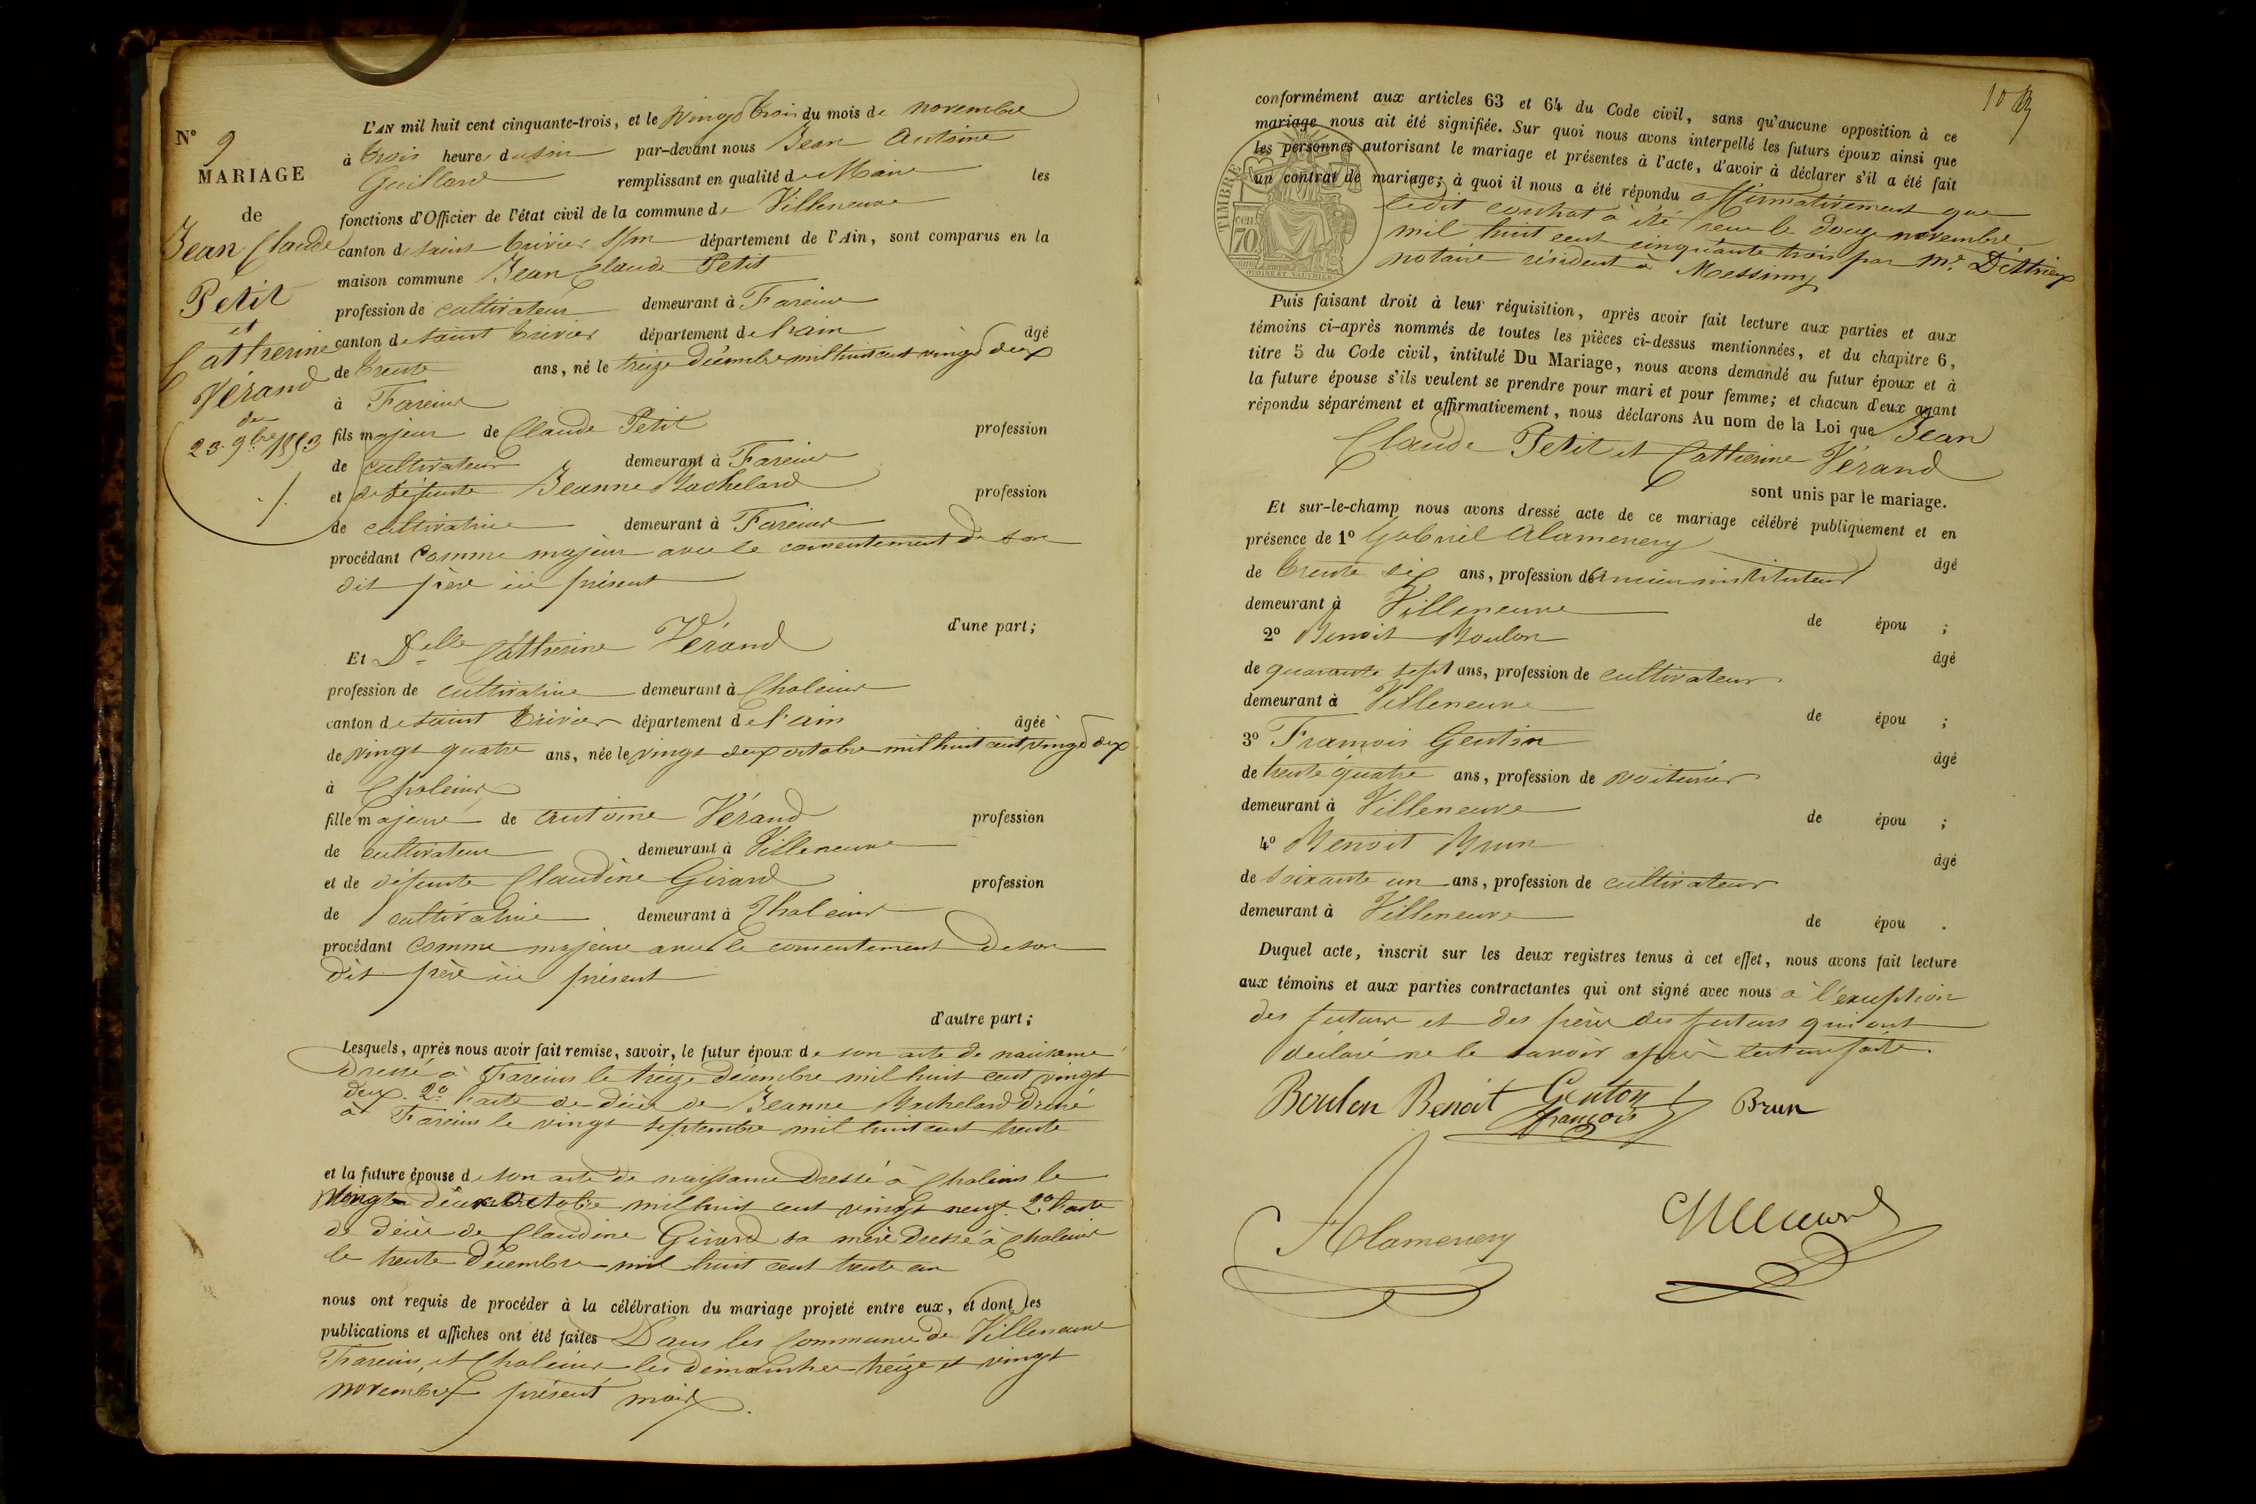 N° 9
MARIAGE
de
Jean Claude
Petit
et
Catherine
Vérand
du
23 9bre 1853
L'AN mil huit cent cinquante-trois, et le vingt trois du mois de novembre
à trois heures du soir par-devant nous Jean Antoine
Guillard remplissant en qualité de Maire les
fonctions d'Officier de l'état civil de la commune de Villeneuve
canton de saint trivier s/m département de l'Ain, sont comparus en la
maison commune Jean Claude Petit
profession de cultivateur demeurant à Fareins
canton de saint trivier département de l'ain âgé
de trente ans, né le treize décembre mil huit cent vingt deux
à Fareins
fils majeur de Claude Petit profession
de cultivateur demeurant à Fareins
et de défunte Jeanne Bachelard profession
de cultivatrice demeurant à Fareins
procédant comme majeur avec le consentement de son
dit père ici présent
d'une part;
Et Delle Catherine Vérand
profession de cultivatrice demeurant à Chaleins
canton de saint trivier département de l'ain âgée
de vingt quatre ans, née le vingt deux octobre mil huit cent vingt deux
à Chaleins
fille majeure de antoine Vérand profession
de cultivateur demeurant à Villeneuve
et de défunte Claudine Girard profession
de cultivatrice demeurant à Chaleins
procédant comme majeure avec le consentement de son
dit père ici présent
d'autre part;
Lesquels, après nous avoir fait remise, savoir, le futur époux de son acte de naissance
dressé à Fareins le treize décembre mil huit cent vingt
deux. 2° l'acte de décès de Jeanne Bachelard dressé
à Fareins le vingt septembre mil huit cent trente
et la future épouse de son acte de naissance dressé à Chaleins le
vingt deux octobre mil huit cent vingt neuf. 2° l'acte
de décès de Claudine Girard sa mère dressé à Chaleins
le trente décembre mil huit cent trente un
nous ont requis de procéder à la célébration du mariage projeté entre eux, et dont les
publications et affiches ont été faites Dans les communes de Villeneuve
Fareins, et Chaleins les dimanches treize et vingt
novembre présent mois.
conformément aux articles 63 et 64 du Code civil, sans qu'aucune opposition à ce
mariage nous ait été signifiée. Sur quoi nous avons interpellé les futurs époux ainsi que
les personnes autorisant le mariage et présentes à l'acte, d'avoir à déclarer s'il a été fait
un contrat de mariage; à quoi il nous a été répondu affirmativement que
ledit contrat a été reçu le douze novembre
mil huit cent cinquante trois par Me
notaire résident à Messimy
TIMBRE
cen.
70
Puis faisant droit à leur réquisition, après avoir fait lecture aux parties et aux
témoins ci-après nommés de toutes les pièces ci-dessus mentionnées, et du chapitre 6,
titre 5 du Code civil, intitulé Du Mariage, nous avons demandé au futur époux et à
la future épouse s'ils veulent se prendre pour mari et pour femme; et chacun d'eux ayant
répondu séparément et affirmativement, nous déclarons Au nom de la Loi que Jean
Claude Petit et Catherine Vérand
sont unis par le mariage.
Et sur-le-champ nous avons dressé acte de ce mariage célébré publiquement et en
présence de 1° Gabriel Alamenery âgé
de trente six ans, profession de ancien instituteur
demeurant à Villeneuve de épou ;
2° Benoit Boulon âgé
de quarante sept ans, profession de cultivateur
demeurant à Villeneuve de épou ;
3° François Genton âgé
de trente quatre ans, profession de voiturier
demeurant à Villeneuve de épou ;
4° Benoit Brun âgé
de soixante un ans, profession de cultivateur
demeurant à Villeneuve de épou .
Duquel acte, inscrit sur les deux registres tenus à cet effet, nous avons fait lecture
aux témoins et aux parties contractantes qui ont signé avec nous à l'exception
des futurs et des pères des futurs qui ont
déclaré ne le savoir après lecture faite.
Boulon Benoit Genton François Brun
Alamenery